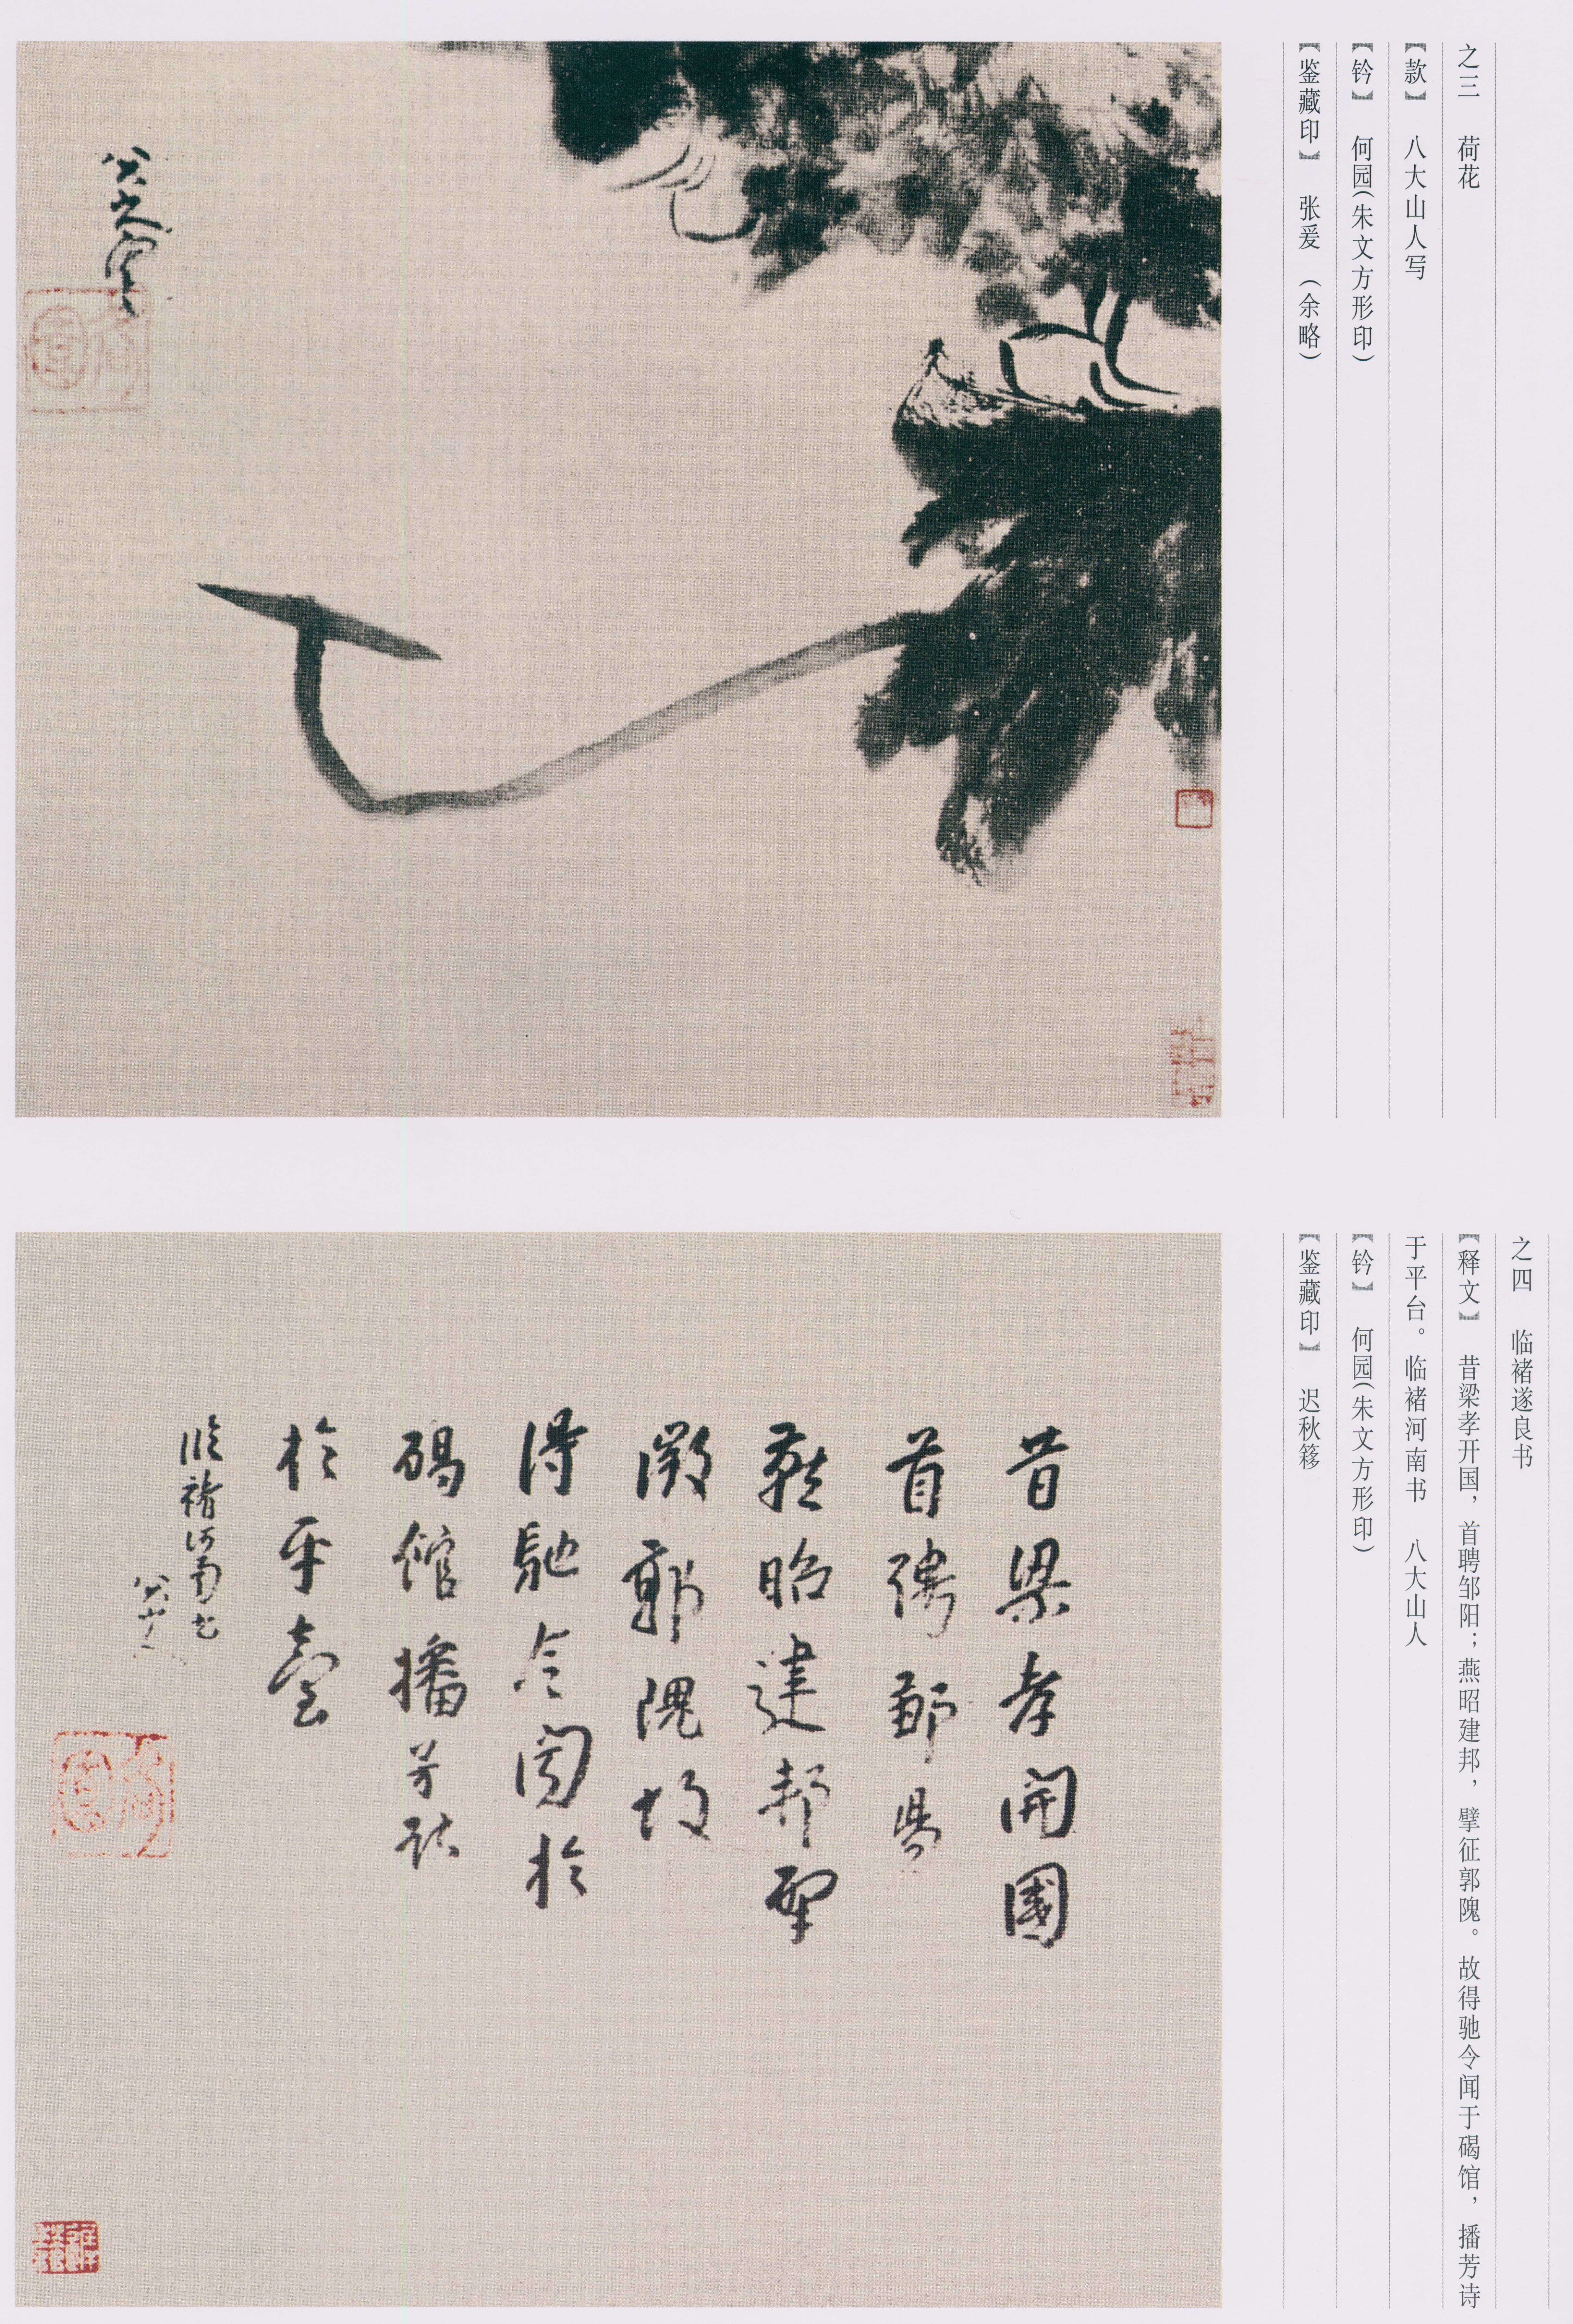 之三 荷花
【款】 八大山人写
【钤】 何园(朱文方形印)
【鉴藏印】 张爰 (余略)
八大山人寫
何園
之四 临褚遂良书
【释文】 昔梁孝开国，首聘邹阳；燕昭建邦，擘征郭隗。故得驰令闻于碣馆，播芳诗
于平台。临褚河南书 八大山人
【钤】 何园(朱文方形印)
【鉴藏印】 迟秋簃
昔梁孝開國
首聘鄒昜
燕昭建邦擘
徵郭隗故
得馳令聞於
碣館播芳詩
於平臺
臨褚河南書
八大山人
何園